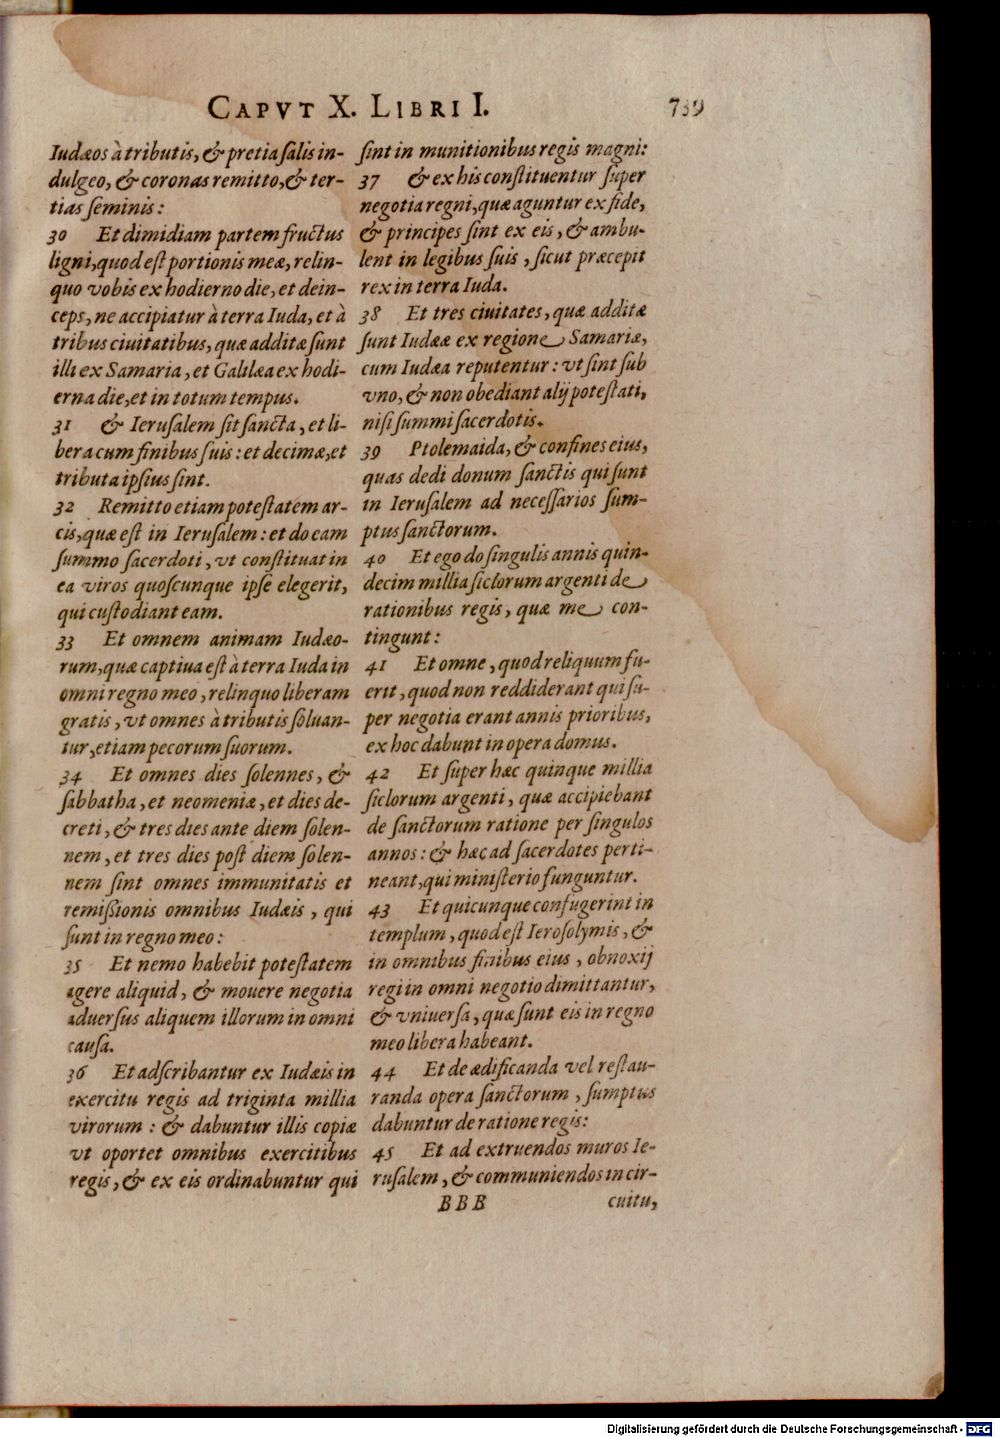 CAPVT X. LIBRI I. 739
Iudæos à tributis, & pretia salis in-
dulgeo, & coronas remitto, & ter-
tias seminis:
30 Et dimidiam partem fructus
ligni, quod est portionis meæ, relin-
quo vobis ex hodierno die, et dein-
ceps, ne accipiatur à terra Iuda, et à
tribus ciuitatibus, quæ additæ sunt
illi ex Samaria, et Galilæa ex hodi-
erna die, et in totum tempus.
31 & Ierusalem sit sancta, et li-
bera cum finibus suis: et decimæ, et
tributa ipsius sint.
32 Remitto etiam potestatem ar-
cis, quæ est in Ierusalem: et do eam
summo sacerdoti, vt constituat in
ea viros quoscunque ipse elegerit,
qui custodiant eam.
33 Et omnem animam Iudæo-
rum, quæ captiua est à terra Iuda in
omni regno meo, relinquo liberam
gratis, vt omnes à tributis soluan-
tur, etiam pecorum suorum.
34 Et omnes dies solennes, &
sabbatha, et neomeniæ, et dies de-
creti, & tres dies ante diem solen-
nem, et tres dies post diem solen-
nem sint omnes immunitatis et
remißionis omnibus Iudæis, qui
sunt in regno meo:
35 Et nemo habebit potestatem
agere aliquid, & mouere negotia
aduersus aliquem illorum in omni
causa.
36 Et adscribantur ex Iudæis in
exercitu regis ad triginta millia
virorum: & dabuntur illis copiæ
vt oportet omnibus exercitibus
regis, & ex eis ordinabuntur qui
sint in munitionibus regis magni:
37 & ex his constituentur super
negotia regni, quæ aguntur ex fide,
& principes sint ex eis, & ambu-
lent in legibus suis, sicut præcepit
rex in terra Iuda.
38 Et tres ciuitates, quæ additæ
sunt Iudææ ex regione Samariæ,
cum Iudæa reputentur: vt sint sub
vno, & non obediant alij potestati,
nisi summi sacerdotis.
39 Ptolemaida, & confines eius,
quas dedi donum sanctis qui sunt
in Ierusalem ad necessarios sum-
ptus sanctorum.
40 Et ego do singulis annis quin-
decim millia siclorum argenti de
rationibus regis, quæ me con-
tingunt:
41 Et omne, quod reliquum fu-
erit, quod non reddiderant qui su-
per negotia erant annis prioribus,
ex hoc dabunt in opera domus.
42 Et super hæc quinque millia
siclorum argenti, quæ accipiebant
de sanctorum ratione per singulos
annos: & hæc ad sacerdotes perti-
neant, qui ministerio funguntur.
43 Et quicunque confugerint in
templum, quod est Ierosolymis, &
in omnibus finibus eius, obnoxij
regi in omni negotio dimittantur,
& vniuersa, quæ sunt eis in regno
meo libera habeant.
44 Et de ædificanda vel restau-
randa opera sanctorum, sumptus
dabuntur de ratione regis:
45 Et ad extruendos muros Ie-
rusalem, & communiendos in cir-
BBB cuitu,
Digitalisierung gefördert durch die Deutsche Forschungsgemeinschaft - DFG